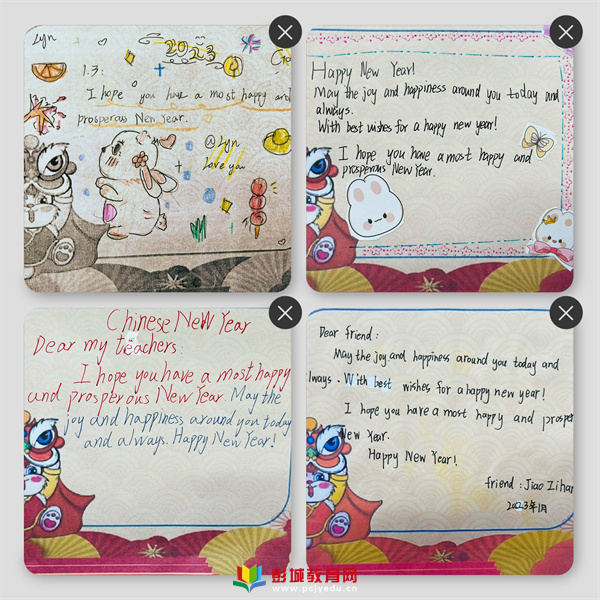 Lyn
2023
1.3:
I hope you have a most happy and
prosperous New Year.
@Lyn
Love you
Happy New Year!
May the joy and happiness around you today and
always.
With best wishes for a happy new year!
I hope you have a most happy and
prosperous New Year.
Chinese New Year
Dear my teachers:
I hope you have a most happy
and prosperous New Year May the
joy and happiness around you today
and always. Happy New Year!
Dear friend:
May the joy and happiness around you today and
lways. With best wishes for a happy new year!
I hope you have a most happy and prosper
New Year.
Happy New Year!
friend: Jiao Zihan
2023年1月
彭城教育网
www.pcjyedu.cn